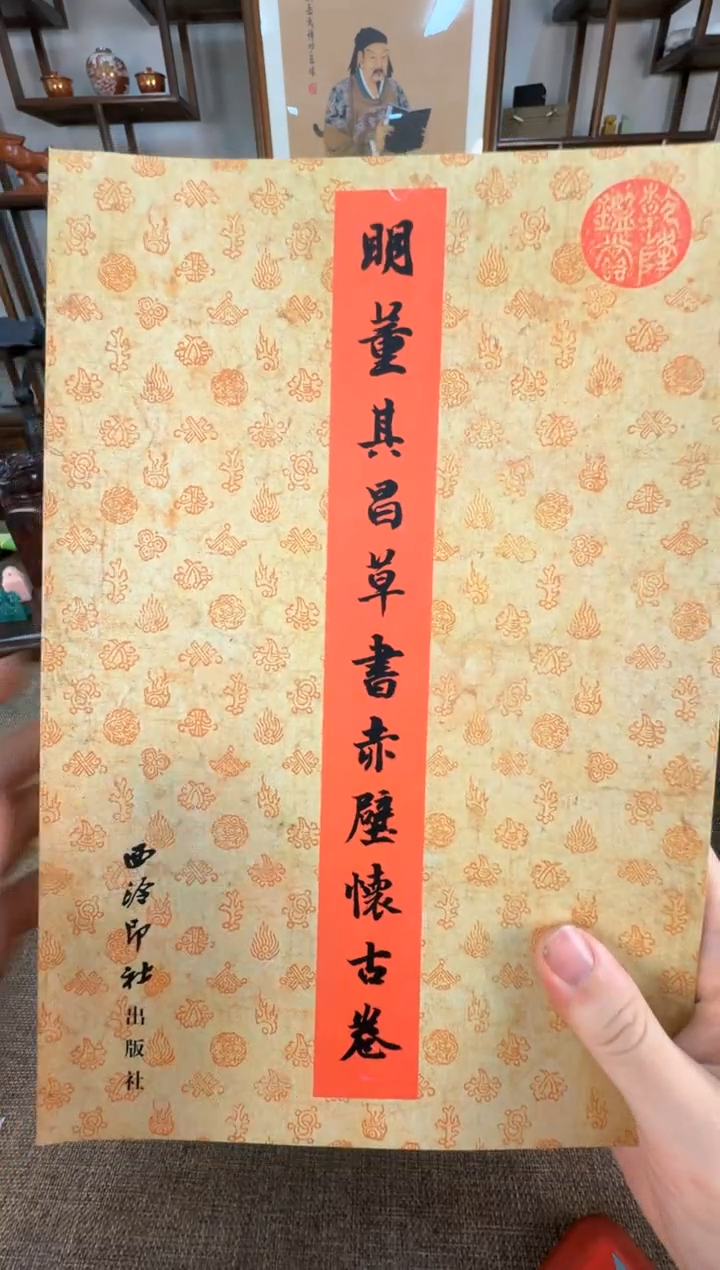 乾隆
鑑賞
明董其昌草書赤壁懷古卷
西泠印社出版社